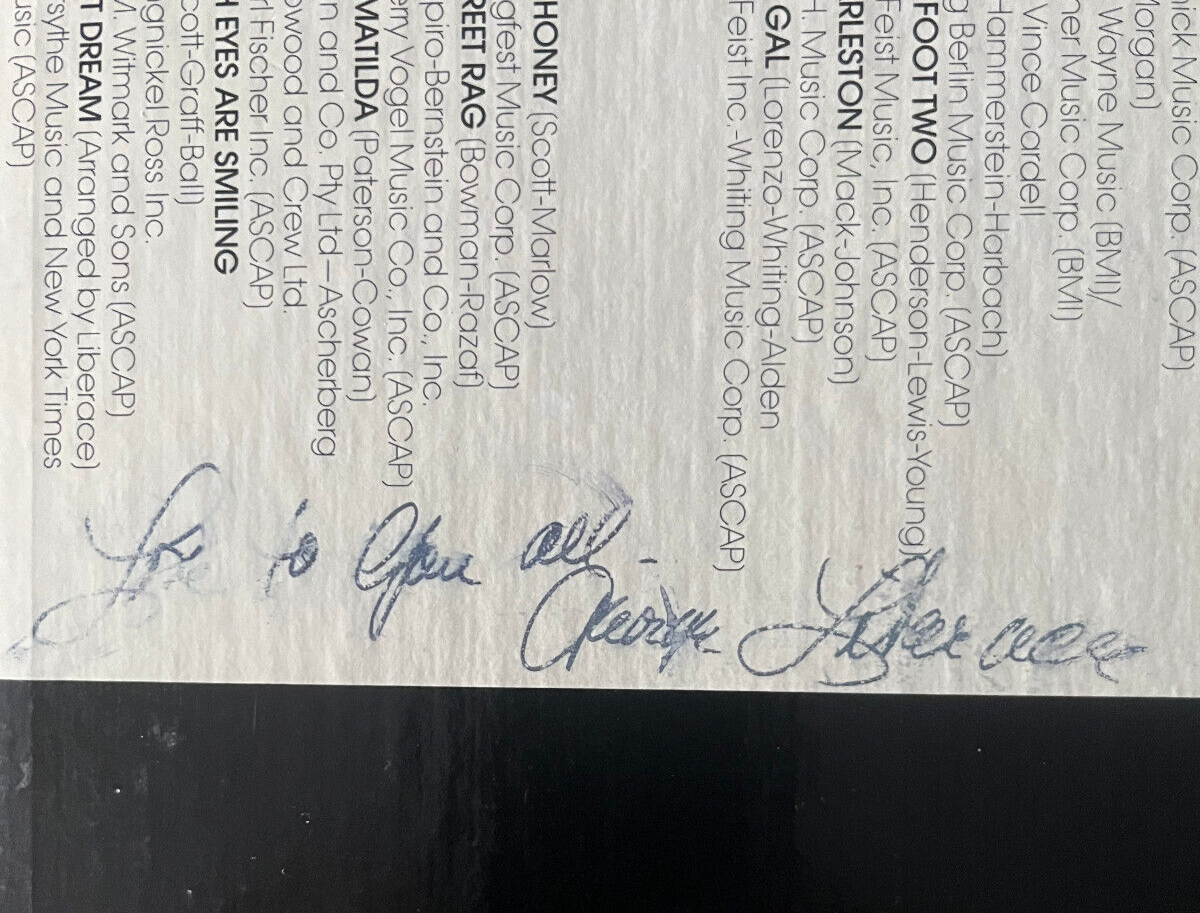 nick Music Corp. (ASCAP)
Morgan)
Wayne Music (BMI)/
ner Music Corp. (BMI)
Vince Cardell
Hammerstein-Harbach)
g Berlin Music Corp. (ASCAP)
FOOT TWO (Henderson-Lewis-Young)
Feist Music, Inc. (ASCAP)
RLESTON (Mack-Johnson)
H. Music Corp. (ASCAP)
GAL (Lorenzo-Whiting-Alden
Feist Inc.-Whiting Music Corp. (ASCAP)
HONEY (Scott-Marlow)
gfest Music Corp. (ASCAP)
REET RAG (Bowman-Razaf)
piro-Bernstein and Co., Inc.
erry Vogel Music Co., Inc. (ASCAP)
MATILDA (Paterson-Cowan)
n and Co. Pty Ltd—Ascherberg
owood and Crew Ltd.
rl Fischer Inc. (ASCAP)
H EYES ARE SMILING
cott-Graff-Ball)
agnickel Ross Inc.
M. Witmark and Sons (ASCAP)
T DREAM (Arranged by Liberace)
rsythe Music and New York Times
usic (ASCAP)
Love to You all -
George Liberace